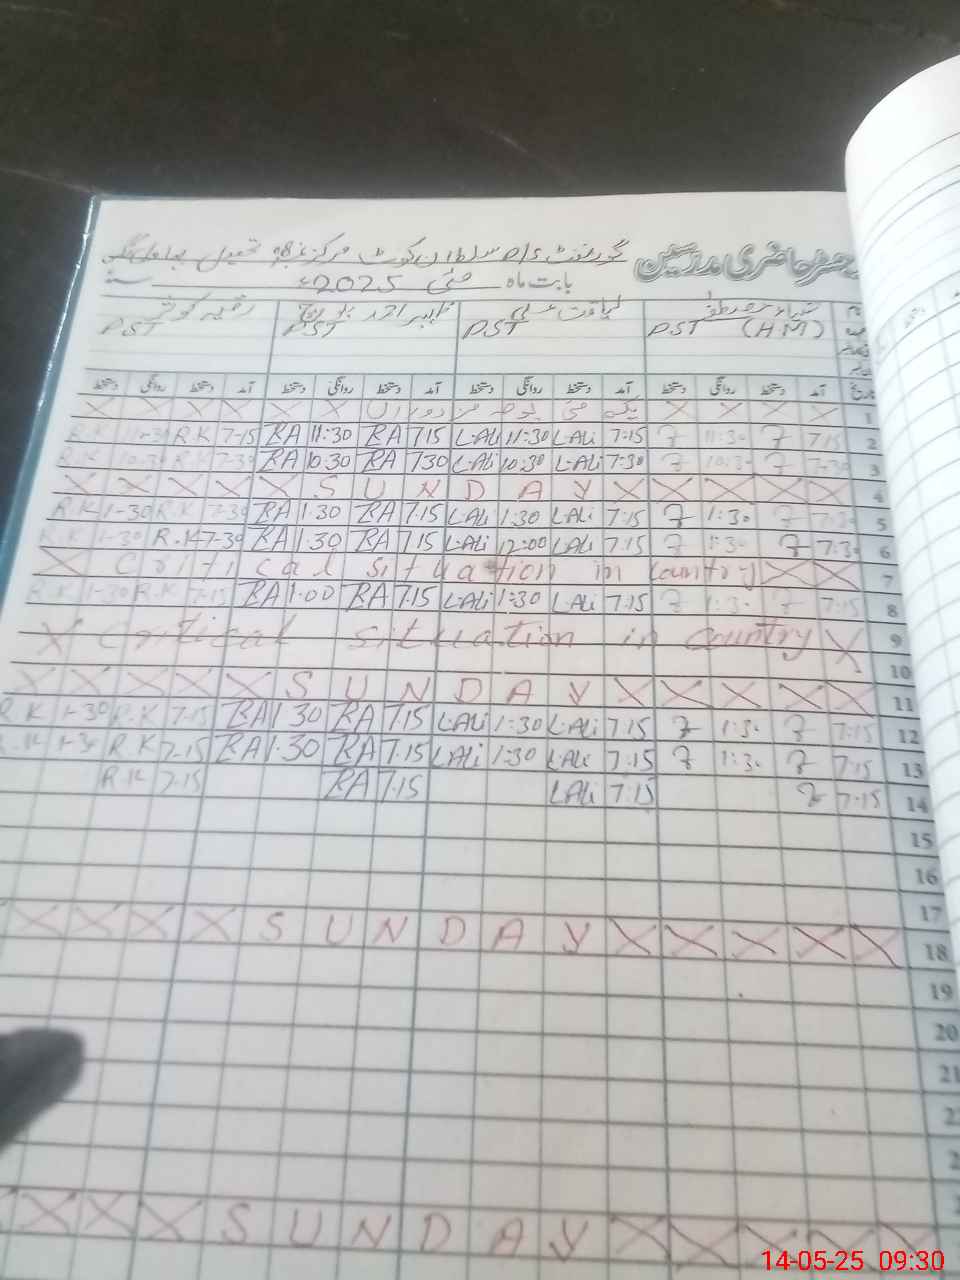 رجسٹر حاضری مدرسین گورنمنٹ سلطان کوٹ مرکز تحصیل
بابت ماہ مئی 2025ء سنہ
ضیاء مصطفی لیاقت علی ظہیر احمد رقیہ کوثر
P.ST (H.M) P.ST P.ST P.ST
تاریخ آمد دستخط روانگی دستخط آمد دستخط روانگی دستخط آمد دستخط روانگی دستخط آمد دستخط روانگی دستخط
1 X X X X یکم مئی یوم مزدوراں X X X X X X
R.K 11-30 R.K 7-15 BA 11:30 BA 7.15 L.Ali 11:30 L.Ali 7:15 11:30 7:15 2
R.K 10:30 R.K 7-30 BA 10.30 BA 730 L.Ali 10:30 L.Ali 7:30 10:30 7:30 3
X X X X X S U N D A Y X X X X X 4
R.K 1-30 R.K 7-30 BA 1.30 BA 7.15 L.Ali 1:30 L.Ali 7:15 1:30 7:30 5
R.K 1-30 R.K 7-30 BA 1.30 BA 7.15 L.Ali 12:00 L.Ali 7:15 1:30 7:30 6
X Critical situation in country X X 7
R.K 1-30 R.K 7-15 BA 1.00 BA 7.15 L.Ali 1:30 L.Ali 7:15 1:30 7:15 8
X Critical situation in country X 9
10
X X X X X S U N D A Y X X X X X 11
R.K 1-30 R.K 7-15 BA 1.30 BA 7.15 L.Ali 1:30 L.Ali 7:15 1:30 7:15 12
R.K 1-30 R.K 7-15 BA 1.30 BA 7.15 L.Ali 1:30 L.Ali 7:15 1:30 7:15 13
R.K 7.15 BA 7.15 L.Ali 7:15 7:15 14
15
16
17
X X X X S U N D A Y X X X X X 18
19
20
21
22
X X X X S U N D A Y X X X X X
14-05-25 09:30